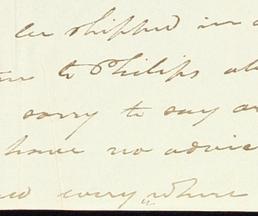 be shipped in
to Philips
sorry to say
have no advice
every where